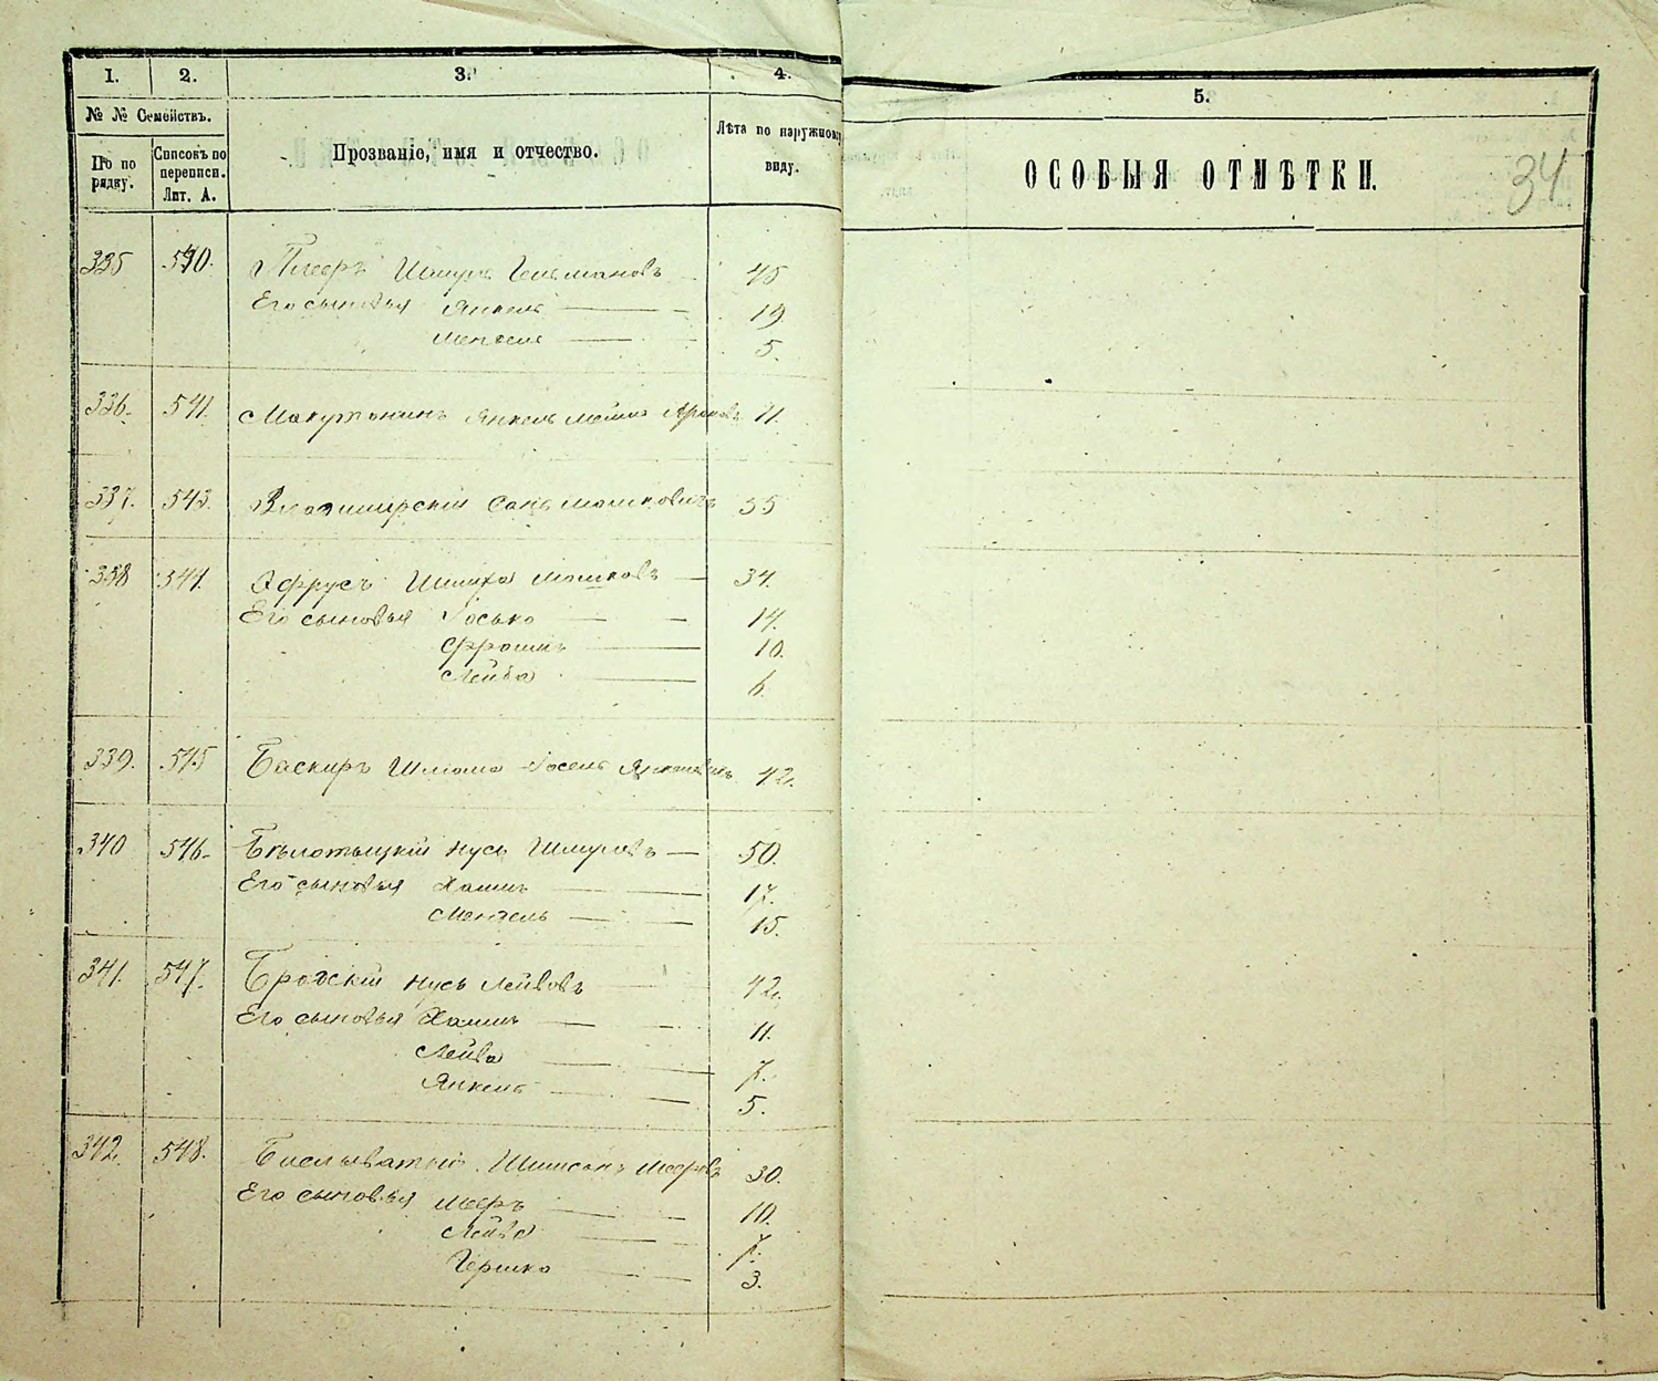 1. 2. 3. 4. 5.
№ № Семействъ.
По по рядку.
Списокъ по переписи. Лит. А.
Прозваніе, имя и отчество.
Лѣта по наружному виду.
ОСОБЫЯ ОТМѢТКИ.
34
335 540. Шмуль 45
Его сыновья Янкель 19
Мендель 5.
336. 541. Янкель Мошко 11.
337. 543. Владимирскій Мошковичъ 55
338 544. Эфрусъ Шмиха Мошковъ 34.
Его сыновья Іосько 14.
Фроимъ 10.
Лейба 6.
339. 545 Баскиръ Шлёма Іосель 42.
340 546. Нусь Шмулевъ 50.
Его сыновья Хаимъ 17.
Мендель 15.
341. 547. Бродскій Нусь Лейбовъ 42.
Его сыновья Хаимъ 11.
Лейба 7.
Янкель 5.
342. 548. Шимсонъ Мееровъ 30.
Его сыновья Мееръ 10.
Лейба 7.
Гершко 3.